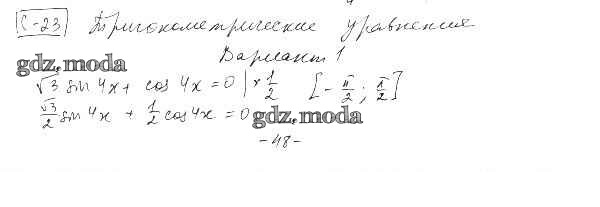 С-23 Тригонометрические уравнения
Вариант 1
gdz.moda
√3 sin 4x + cos 4x = 0 | × 1/2 [-π/2; π/2]
√3/2 sin 4x + 1/2 cos 4x = 0 gdz.moda
- 48 -